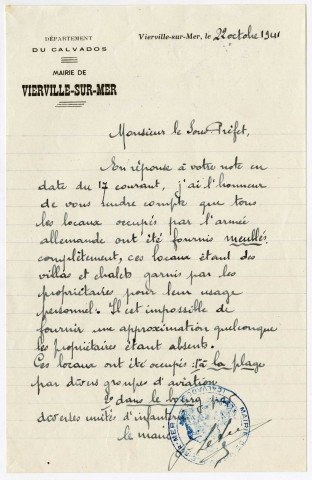 DÉPARTEMENT
DU CALVADOS
MAIRIE DE
VIERVILLE-SUR-MER
Vierville-sur-Mer, le 22 octobre 1941
Monsieur le Sous Préfet,
En réponse à votre note en
date du 17 courant, j'ai l'honneur
de vous rendre compte que tous
les locaux occupés par l'armée
allemande ont été fournis meublés
complètement, ces locaux étant des
villas et chalets garnis par les
propriétaires pour leur usage
personnel. Il est impossible de
fournir une approximation quelconque
les propriétaires étant absents.
Ces locaux ont été occupés: 1º à la plage
par divers groupes d'aviation
2º dans le bourg par
diverses unités d'infanterie
le maire
MAIRIE DE